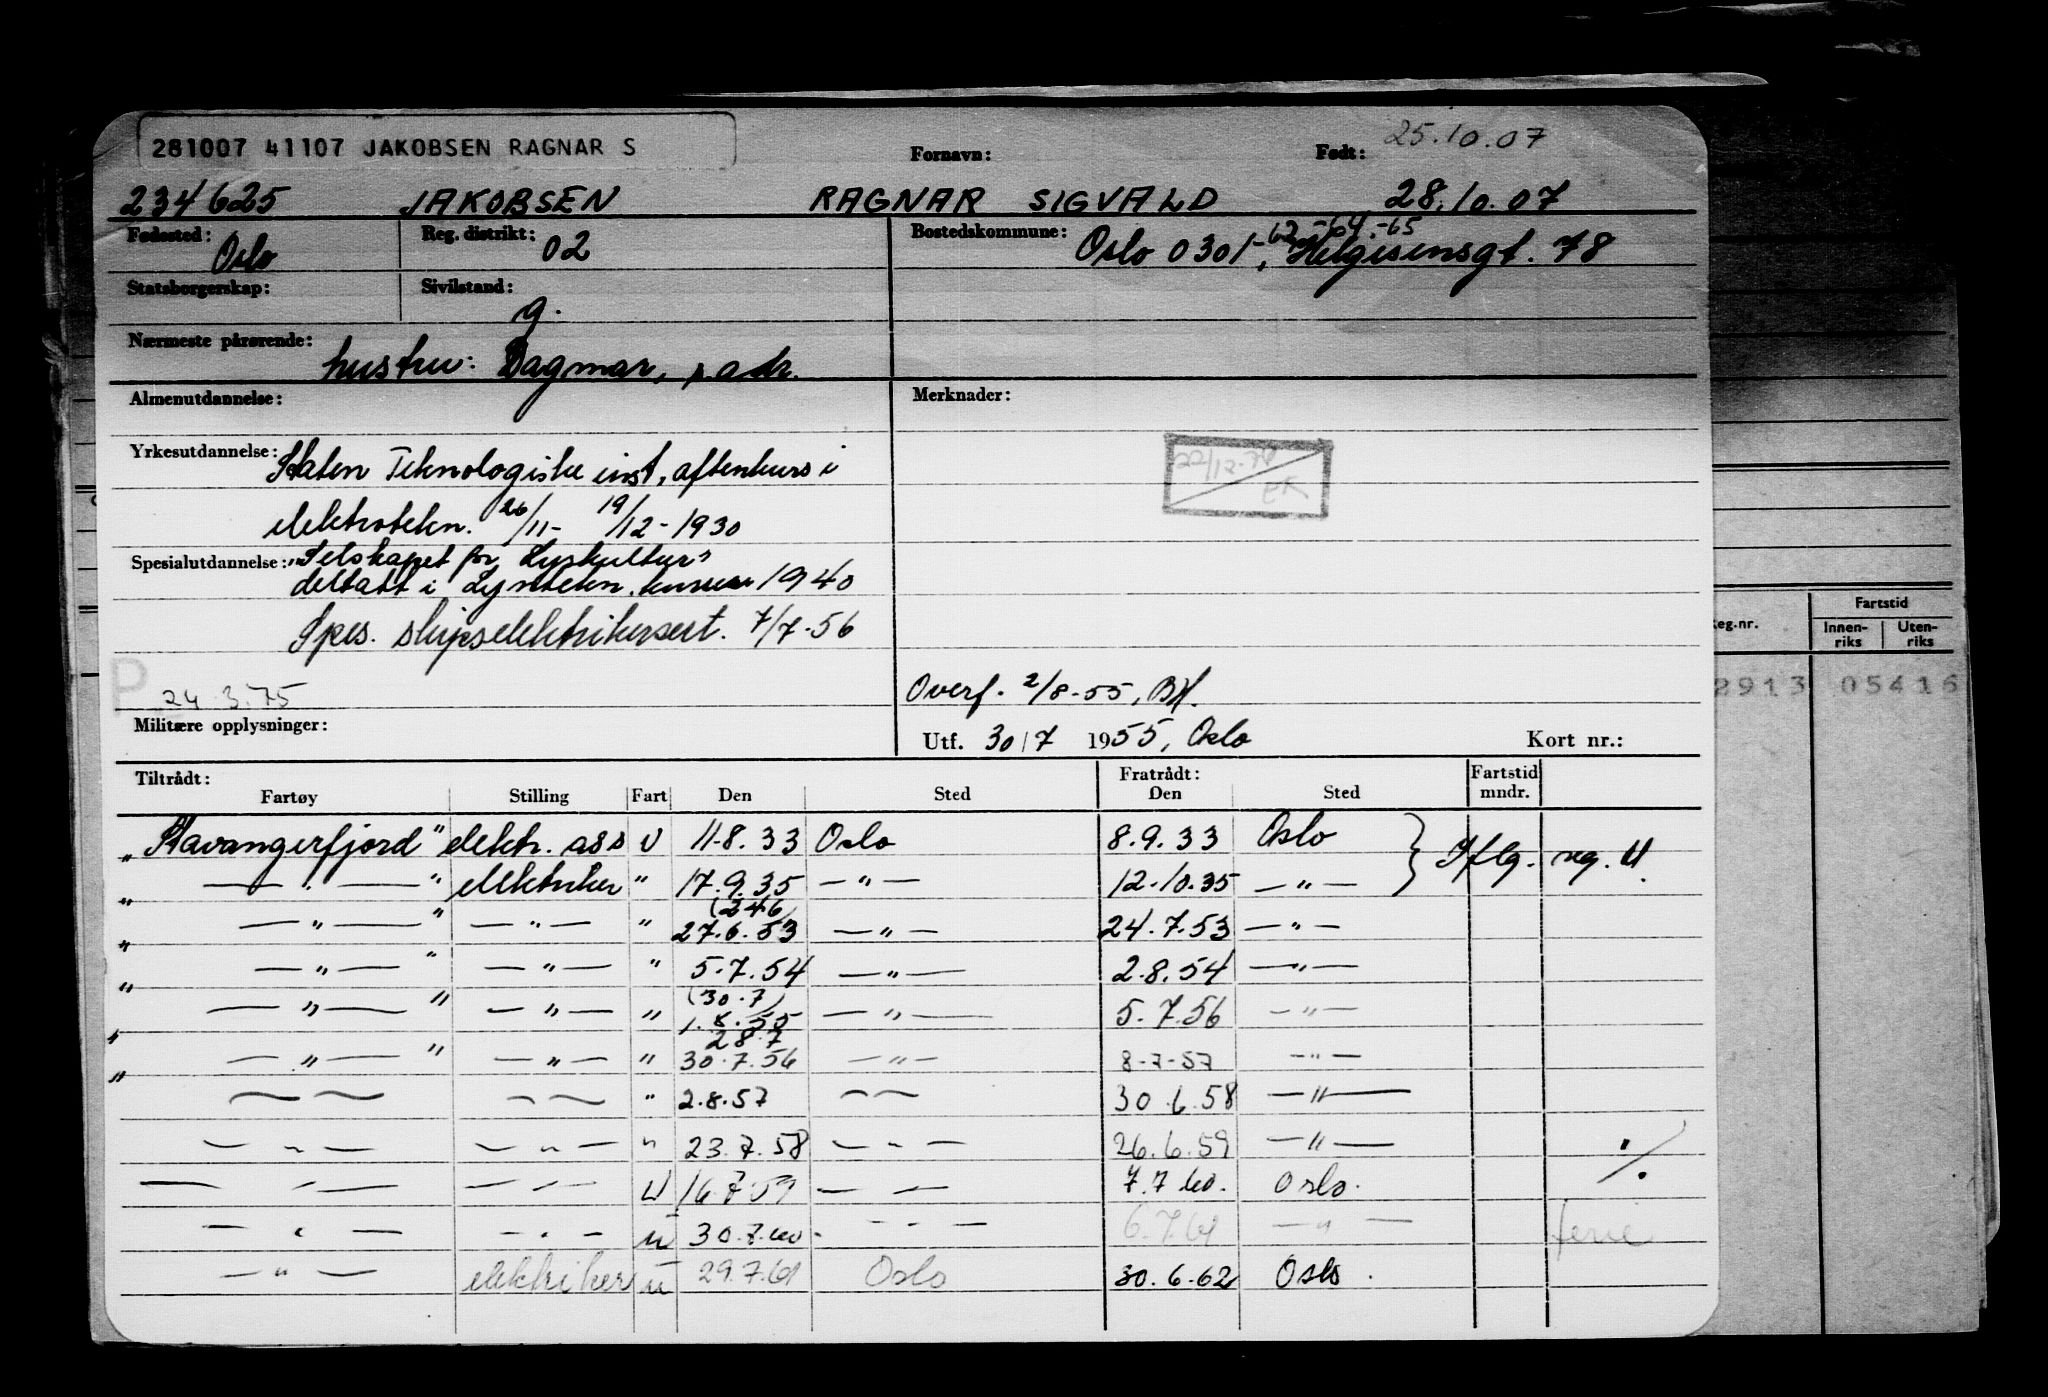 25.10.07
281007 41107 JAKOBSEN RAGNAR S
Fornavn: Født:
234625 JAKOBSEN RAGNAR SIGVALD 28.10.07
Fødested: Oslo Reg. distrikt: 02 Bostedskommune: Oslo 0301, -62, -64, -65 Helgesensgt. 78
Statsborgerskap: Sivilstand: g.
Nærmeste pårørende: hustru: Dagmar, s. adr.
Almenutdannelse: Merknader:
Yrkesutdannelse: Staten Teknologiske inst, aftenkurs i
22/12-76 EK
elektrotekn. 26/11 - 19/12 - 1930
Spesialutdannelse: "Selskapet for Lyskultur"
deltatt i Lystekn. kursus 1940
Spes. skipselektrikersert. 7/7-56
P 24.3.75
Overf. 2/8-55, BH.
Militære opplysninger:
Utf. 30/7 1955, Oslo Kort nr.:
Tiltrådt: Fratrådt: Fartstid
Fartøy Stilling Fart Den Sted Den Sted mndr.
"Stavangerfjord" elektr. ass U 11-8.33 Oslo 8.9.33 Oslo } Iflg. reg. U.
" — " — " elektriker " 17.9.35 — " — 12.10.35 — " —
(24.6)
" — " — " — " — " 27.6.53 — " — 24.7.53 — " —
" — " — " — " — " 5.7.54 — " — 2.8.54 — " —
(30.7)
" — " — " — " — " 1.8.55 — " — 5.7.56 — " —
28.7
" — " — " — " — " 30.7.56 — " — 8-7-57 — " —
— — — — " 2.8.57 — — 30.6.58 — " —
— " — — " — " 23.7.58 — " — 26.6.59 — " — ./.
— " — — " — U 16.7.59 — " — 7.7.60. Oslo.
— " — — " — u 30.7.60. — " — 6.7.61 — " — ferie
— " — elektriker u 29.7.61 Oslo 30.6.62 Oslo.
Reg.nr. Fartstid
Innen-riks Uten-riks
2913 05416